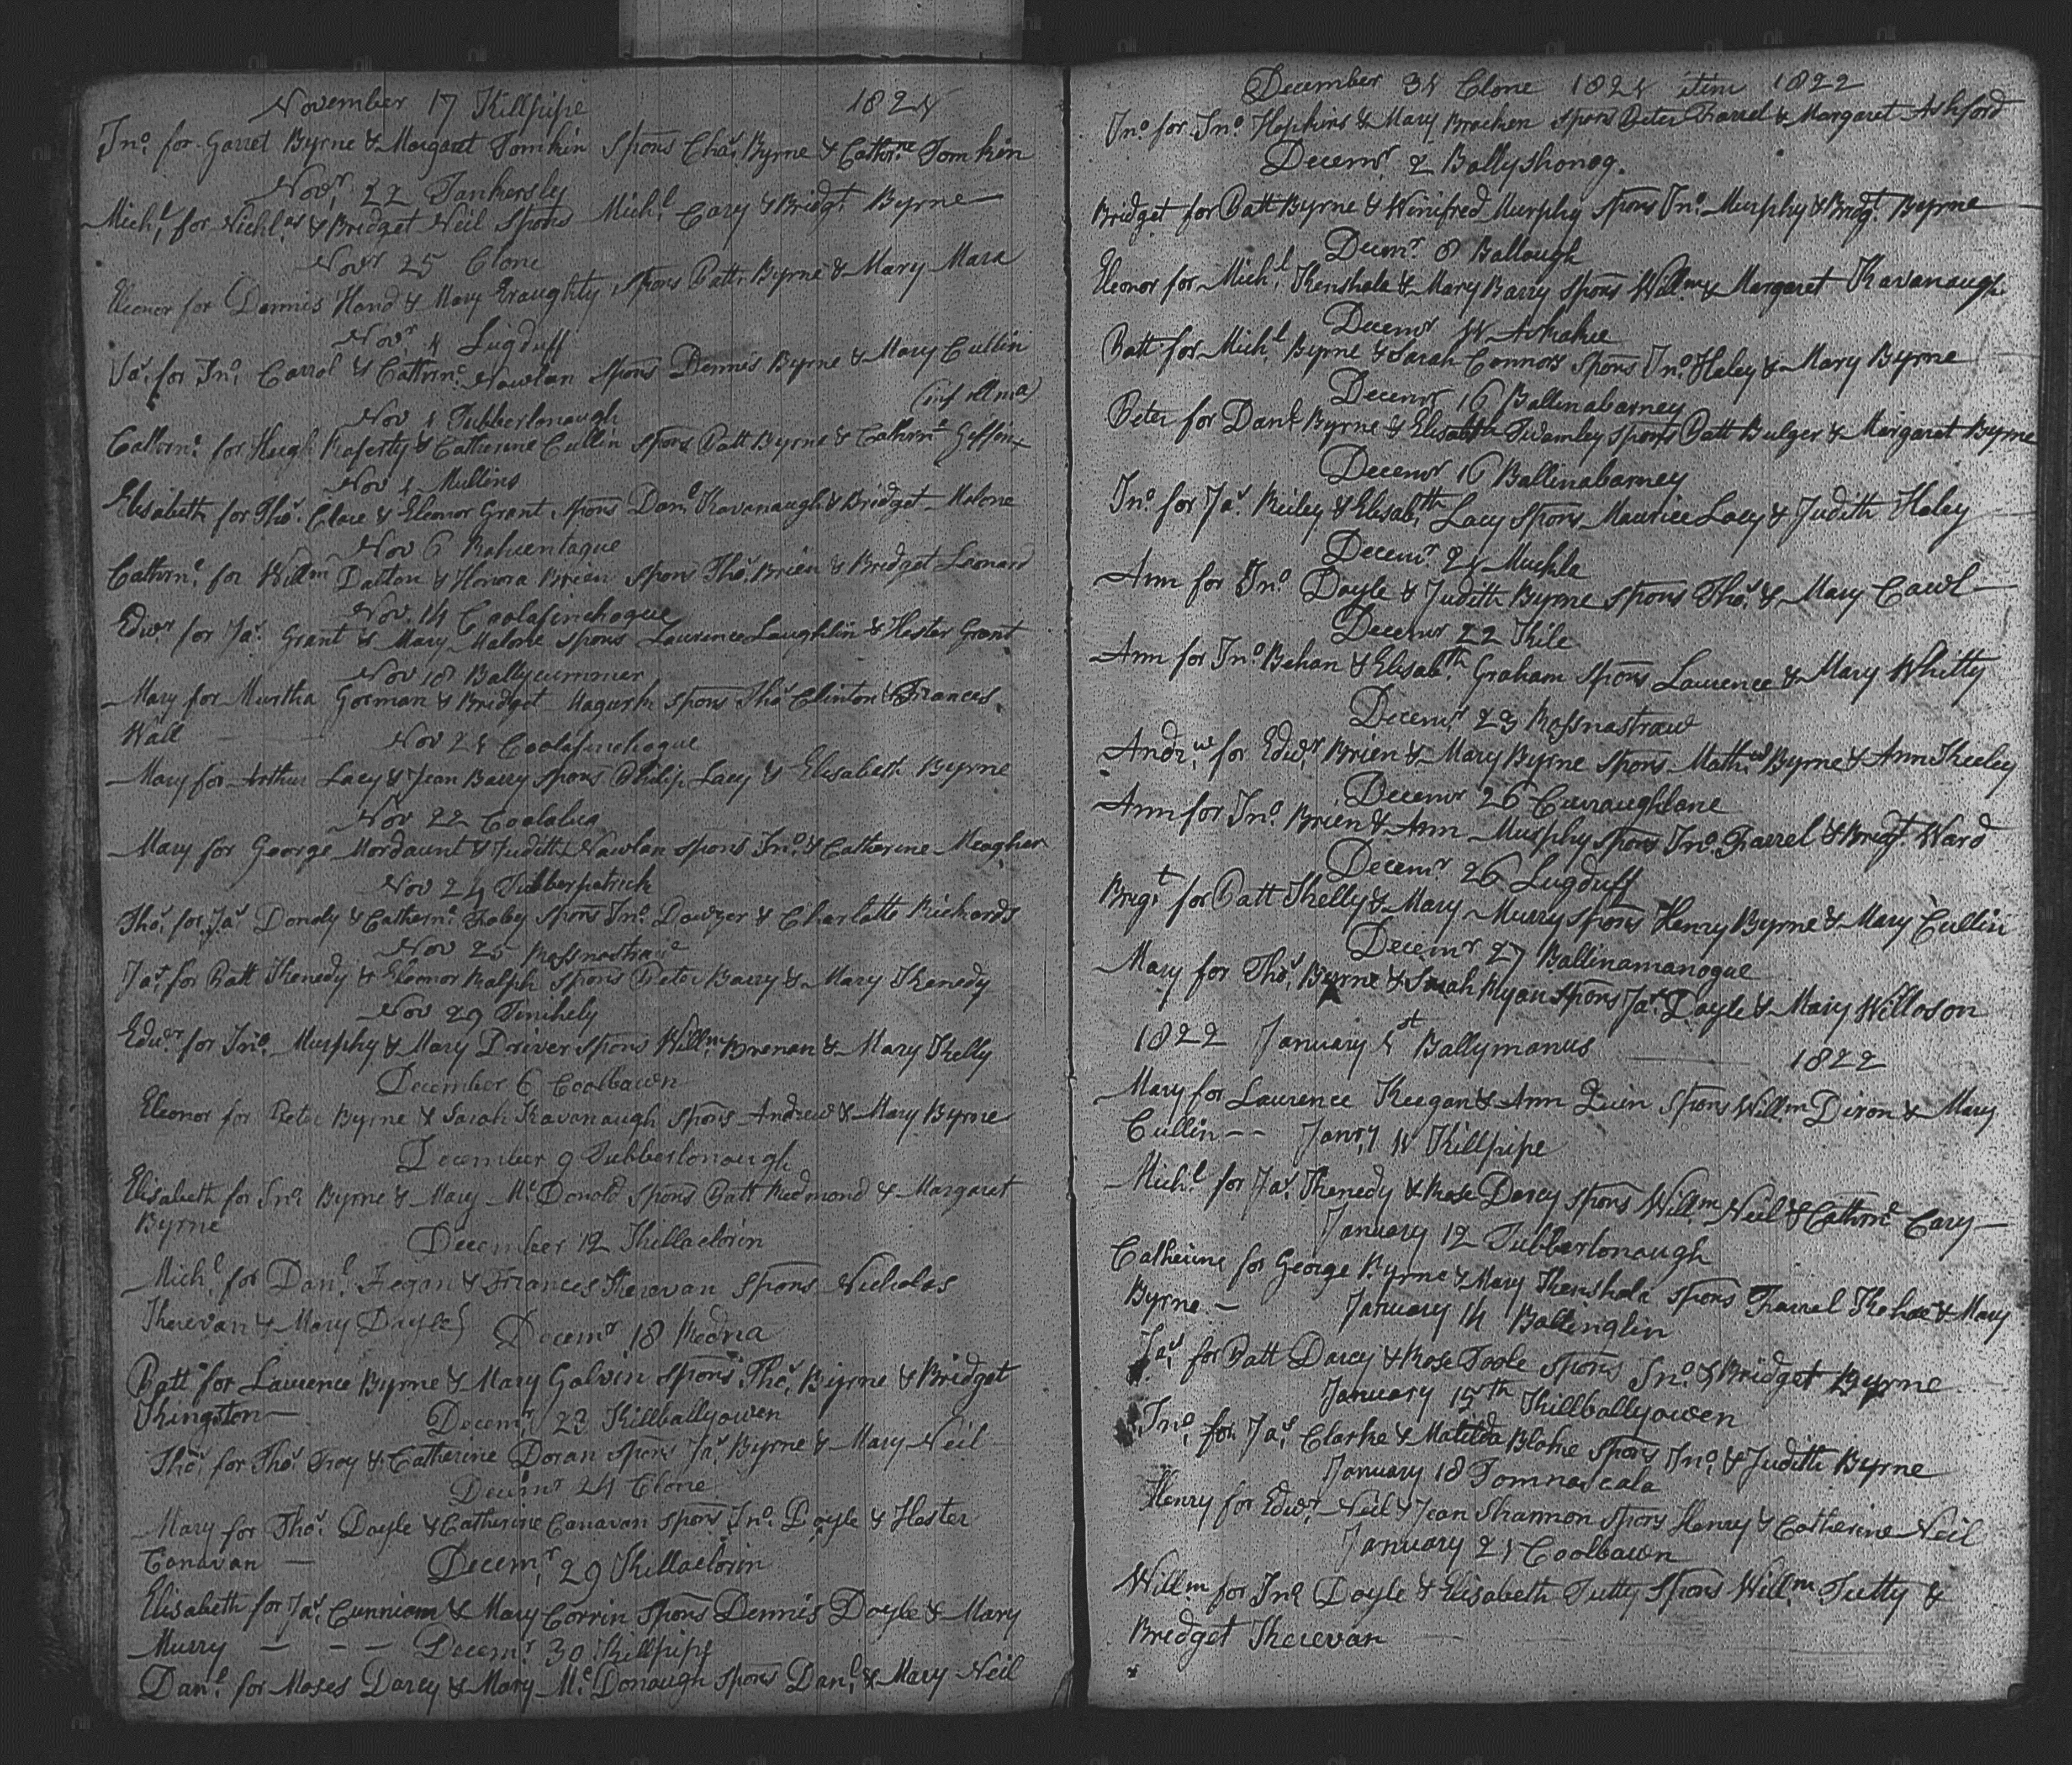 November 17 Killpipe 1821
Jno. for Garret Byrne & Margaret Tomkin Spons Chas. Byrne & Cathrne Tomkin
Novr. 22 Tankersly
Michl. for Nichlas & Bridget Neil Spons Michl. Cary & Bridgt. Byrne
Novr 25 Clone
Eleonor for Dennis Hand & Mary Graughty Spons Patt. Byrne & Mary Mara
Novr 1 Lugduff
Jas. for Jno. Carrol & Cathrne. Nowlan Spons Dennis Byrne & Mary Cullin
Nov 1 Tubberlonaugh
Cathrne. for Hugh Raferty & Catherine Cullin Spons Patt Byrne & Cathrne
Nov 1 Mullins
Elisabeth for Thos. Clare & Eleonor Grant Spons Danl Kavanaugh & Bridget Malone
Nov 6
Cathrne. for Willm Dalton & Honora Brien Spons Thos. Brien & Bridget Leonard
Nov. 14 Coolafinchogue
Edwr for Jas. Grant & Mary Malone Spons Laurence Laughlin & Hester Grant
Nov 18 Ballycummer
Mary for Murtha Gorman & Bridget Spons Thos Clinton & Frances
Wall
Nov 21 Coolafinchogue
Mary for Arthur Lacy & Jean Barry Spons Philip Lacy & Elisabeth Byrne
Nov 22 Coolalua
Mary for George Mordaunt & Judith Nowlan Spons Jno. & Catherine Meagher
Nov 24 Tubberpatrick
Thos. for Jas Dondy & Cathern. Foley Spons Jno. Dowzer & Charlotte Richards
Nov 25 Rossnastraw
Jas. for Patt Kenedy & Eleonor Ralph Spons Peter Barry & Mary Kenedy
Nov 29 Tinihely
Edwr. for Jno. Murphy & Mary Driver Spons Willm. Brenan & Mary Kelly
December 6 Coolbawn
Eleonor for Peter Byrne & Sarah Kavanaugh Spons Andrew & Mary Byrne
December 9 Tubberlonaugh
Elisabeth for Jno. Byrne & Mary McDonald Spons Patt Redmond & Margaret
Byrne
December 12 Killaclorin
Michl. for Danl. Fegan & Frances Kerevan Spons Nicholas
Kerevan & Mary Doyle
Decemr 18 Medna
Patt for Laurence Byrne & Mary Galvin Spons. Thos. Byrne & Bridget
Kingston
Decemr. 23 Killballyowen
Thos. for Thos Troy & Catherine Doran Spons Jas. Byrne & Mary Neil
Decemr 24 Clone
Mary for Thos. Doyle & Catherine Canavan Spons Jno. Doyle & Hester
Canavan
Decemr. 29 Killaclorin
Elisabeth for Jas. Cunniam & Mary Corrin Spons Dennis Doyle & Mary
Murry
Decemr. 30 Killpipe
Danl. for Moses Darcy & Mary McDonaugh Spons Danl. & Mary Neil
December 31 Clone 1821 1822
Jno. for Jno. Hopkins & Mary Bracken Spons Peter Farrel & Margaret Ashford
Decemr. 2 Ballyshonog.
Bridget for Patt Byrne & Winifred Murphy Spons Jno. Murphy & Bridgt. Byrne
Decemr. 8 Ballough
Eleonor for Michl. Kenshala & Mary Barry Spons Willm. & Margaret Kavanaugh
Decemr 11 Askakee
Patt for Michl. Byrne & Sarah Connors Spons Jno. Haley & Mary Byrne
Decemr 16 Ballinabarney
Peter for Danl Byrne & Elisabeth Twamley Spons Patt Bulger & Margaret Byrne
Decemr 16 Ballinabarney
Jno. for Jas. Reiley & Elisabth. Lacy Spons Maurice Lacy & Judith Haley
Decemr. 21 Muckla
Ann for Jno. Doyle & Judith Byrne Spons Thos. & Mary Cawl
Decemr 22 Kile
Ann for Jno. Behan & Elisabth. Graham Spons Laurence & Mary Whitty
Decemr. 23 Rossnastraw
Andrw. for Edwr. Brien & Mary Byrne Spons Mathw Byrne & Ann Keeley
Decemr 26 Curraughlane
Ann for Jno. Brien & Ann Murphy Spons Jno. Farrel & Bridgt. Ward
Decemr. 26 Lugduff
Brigt. for Patt Kelly & Mary Murry Spons Henry Byrne & Mary Cullin
Decemr 27 Ballinamanogue
Mary for Thos. Byrne & Sarah Ryan Spons Jas. Doyle & Mary Willoson
1822 January 1st Ballymanus 1822
Mary for Laurence Keegan & Ann Quin Spons Willm Dixon & Mary
Cullin -- Janry 11 Killpipe
Michl. for Jas. Kenedy & Rose Darcy Spons Willm. Neil & Cathrne Cary
January 12 Tubberlonaugh
Catherine for George Byrne & Mary Kenshala Spons Farrel Kehoe & Mary
Byrne -
January 14 Ballinglin
Jas. for Patt Darcy & Rose Toole Spons Jno. & Bridget Byrne
January 15th Killballyowen
Jno. for Jas. Clarke & Matilda Blake Spons Jno. & Judith Byrne
January 18 Tomnascala
Henry for Edwr. Neil & Jean Shannon Spons Henry & Catherine Neil
January 21 Coolbawn
Willm for Jno. Doyle & Elisabeth Tutty Spons Willm. Tutty &
Bridget Kerevan